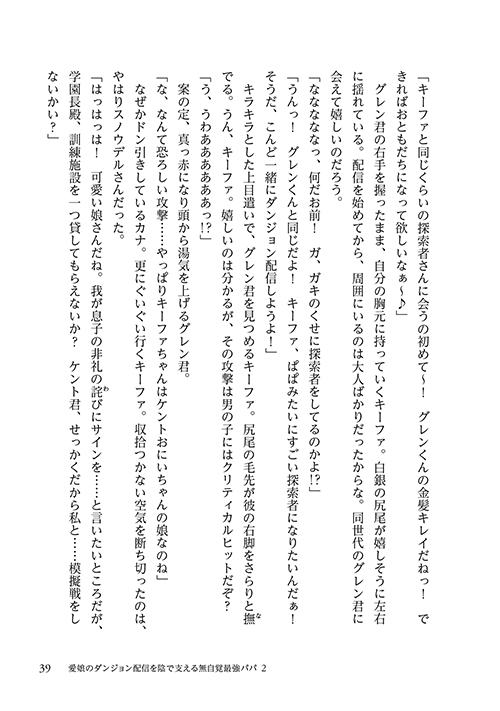 「キーファと同じくらいの探索者さんに会うの初めて～！　グレンくんの金髪キレイだねっ！　で
きればおともだちになって欲しいなぁ～♪」
　グレン君の右手を握ったまま、自分の胸元に持っていくキーファ。白銀の尻尾が嬉しそうに左右
に揺れている。配信を始めてから、周囲にいるのは大人ばかりだったからな。同世代のグレン君に
会えて嬉しいのだろう。
「なななななっ、何だお前！　ガ、ガキのくせに探索者をしてるのかよ!?」
「うんっ！　グレンくんと同じだよ！　キーファ、ぱぱみたいにすごい探索者になりたいんだぁ！
そうだ、こんど一緒にダンジョン配信しようよ！」
　キラキラとした上目遣いで、グレン君を見つめるキーファ。尻尾の毛先が彼の右脚をさらりと撫な
でる。うん、キーファ。嬉しいのは分かるが、その攻撃は男の子にはクリティカルヒットだぞ？
「う、うわああああああっ!?」
　案の定、真っ赤になり頭から湯気を上げるグレン君。
「な、なんて恐ろしい攻撃……やっぱりキーファちゃんはケントおにいちゃんの娘なのね」
　なぜかドン引きしているカナ。更にぐいぐい行くキーファ。収拾つかない空気を断ち切ったのは、
やはりスノウデルさんだった。
「はっはっは！　可愛い娘さんだね。我が息子の非礼の詫わびにサインを……と言いたいところだが、
学園長殿、訓練施設を一つ貸してもらえないか？　ケント君、せっかくだから私と……模擬戦をし
ないかい？」
39　愛娘のダンジョン配信を陰で支える無自覚最強パパ 2